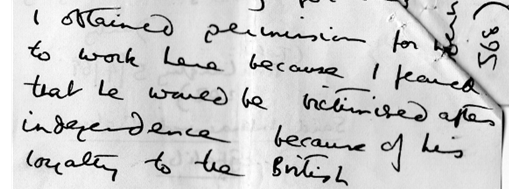 I obtained permission for
to work here because I feared
that he would be victimised after
independence because of his
loyalty to the British